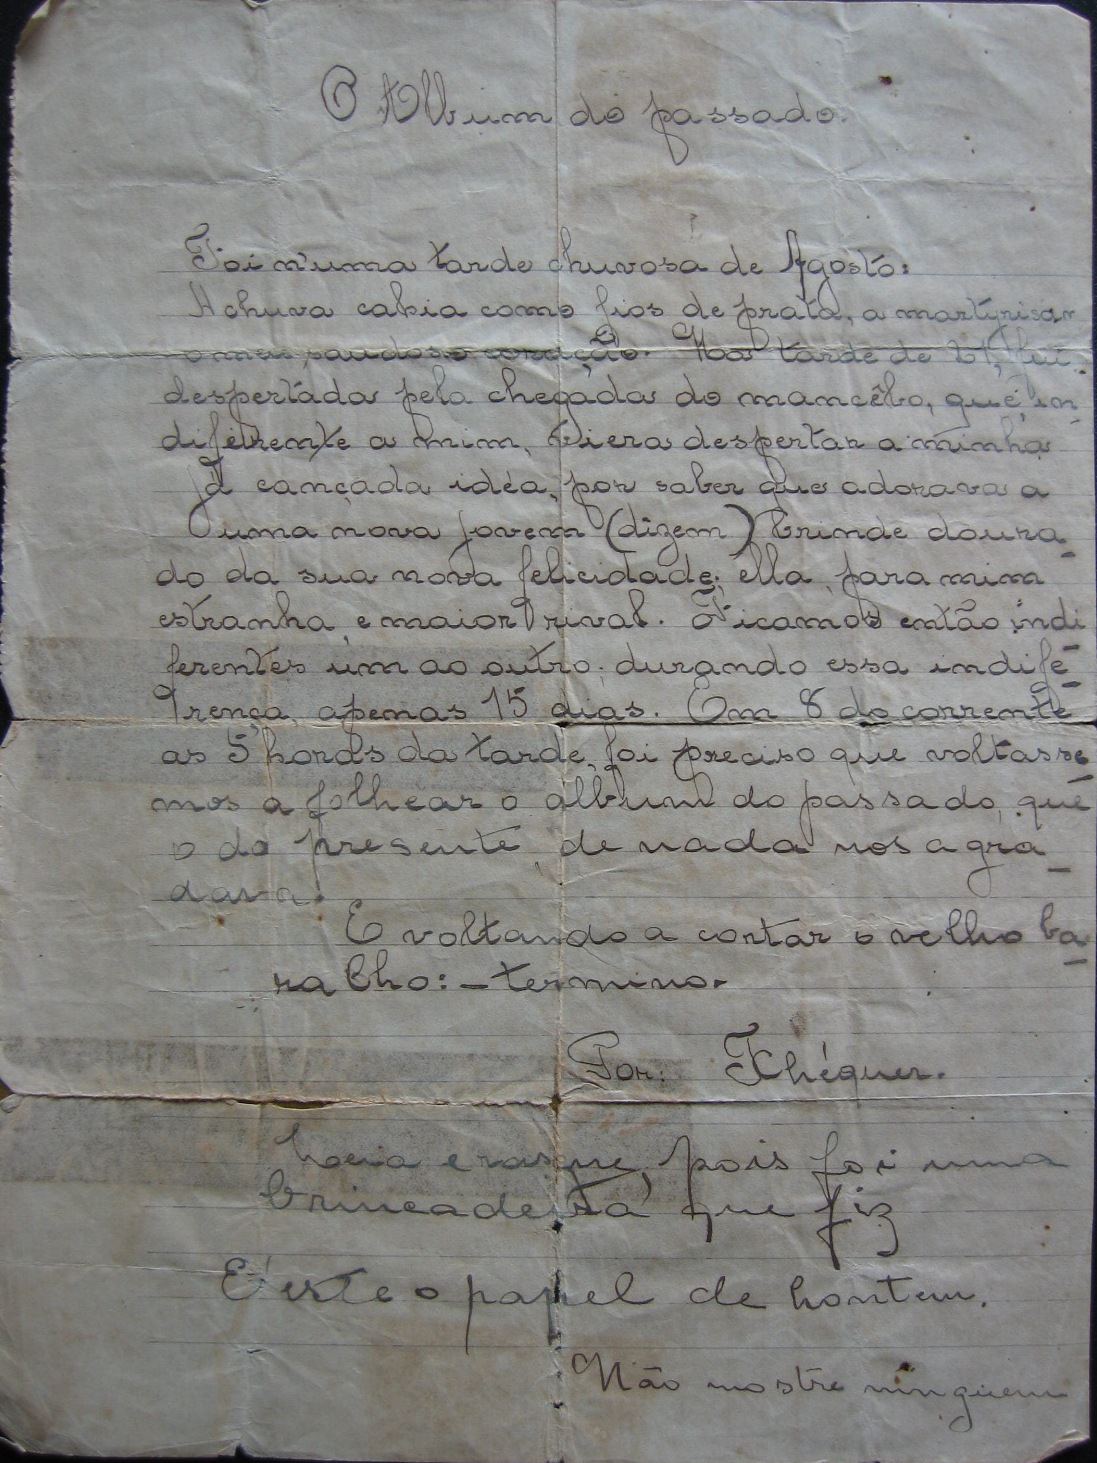 O Album do passado.
Foi n'uma tarde chuvosa de Agosto:
A chuva cahia como fios de prata, a martyrisar
o meu saudoso coração. Na tarde de 21, fui
despertada pela chegada do mancêbo, que, in-
diferente a mim, viera despertar a minha
já cançada idéa, por saber que adorava a
uma nova jovem (dizem) brinde doura-
do da sua nova felicidade; ella, para mim
estranha, e maior rival. Ficamos então indi-
ferentes um ao outro; durando essa indife-
rença, apenas 15 dias. Em 8 do corrente
as 5 horas da tarde, foi preciso que voltasse-
mos a folhear o album do passado, que
o do presente, de nada nos agra-
dava.
E voltando a contar o velho ba-
ralho: - termino.
Por: Khéquer.
Leia e rasque, pois foi uma
brincadeira que fiz
E' este o papel de hontem.
Não mostre ninguem